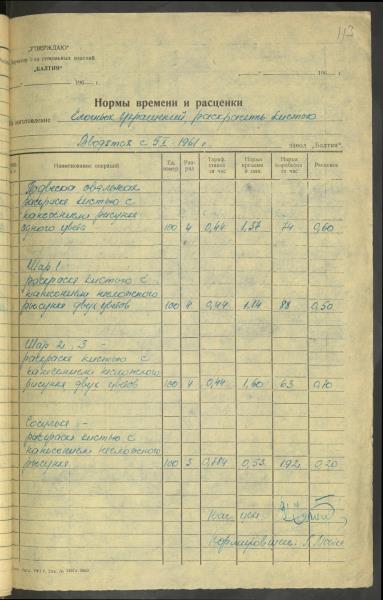 113
„УТВЕРЖДАЮ"
Директор з-да специальных изделий
„БАЛТИЯ"
196 г.
196 г.
Нормы времени и расценки
На изготовление Елочных украшений, раскрасить кистью
Вводятся с 5/I - 1961 г. завод „Балтия".
Наименование операций
Ед. измер
Раз-ряд
Тариф. ставка за час
Норма времени в мин.
Норма выработки за час
Расценок
Подвеска овальная
раскраска кистью с
нанесением рисунка
одного цвета 100 4 0,44 1.37 74 0,60
Шар 1
раскраска кистью с
нанесением несложного
рисунка двух цветов 100 4 0,44 1.14 88 0,50
Шар 2, 3 -
раскраска кистью с
нанесением несложного
рисунка двух цветов 100 4 0,44 1,60 63 0,70
Сосулька -
раскраска кистью с
нанесением несложного
рисунка 100 3 0,384 0,53 192 0,20
Нач. цеха
Нормировщик: